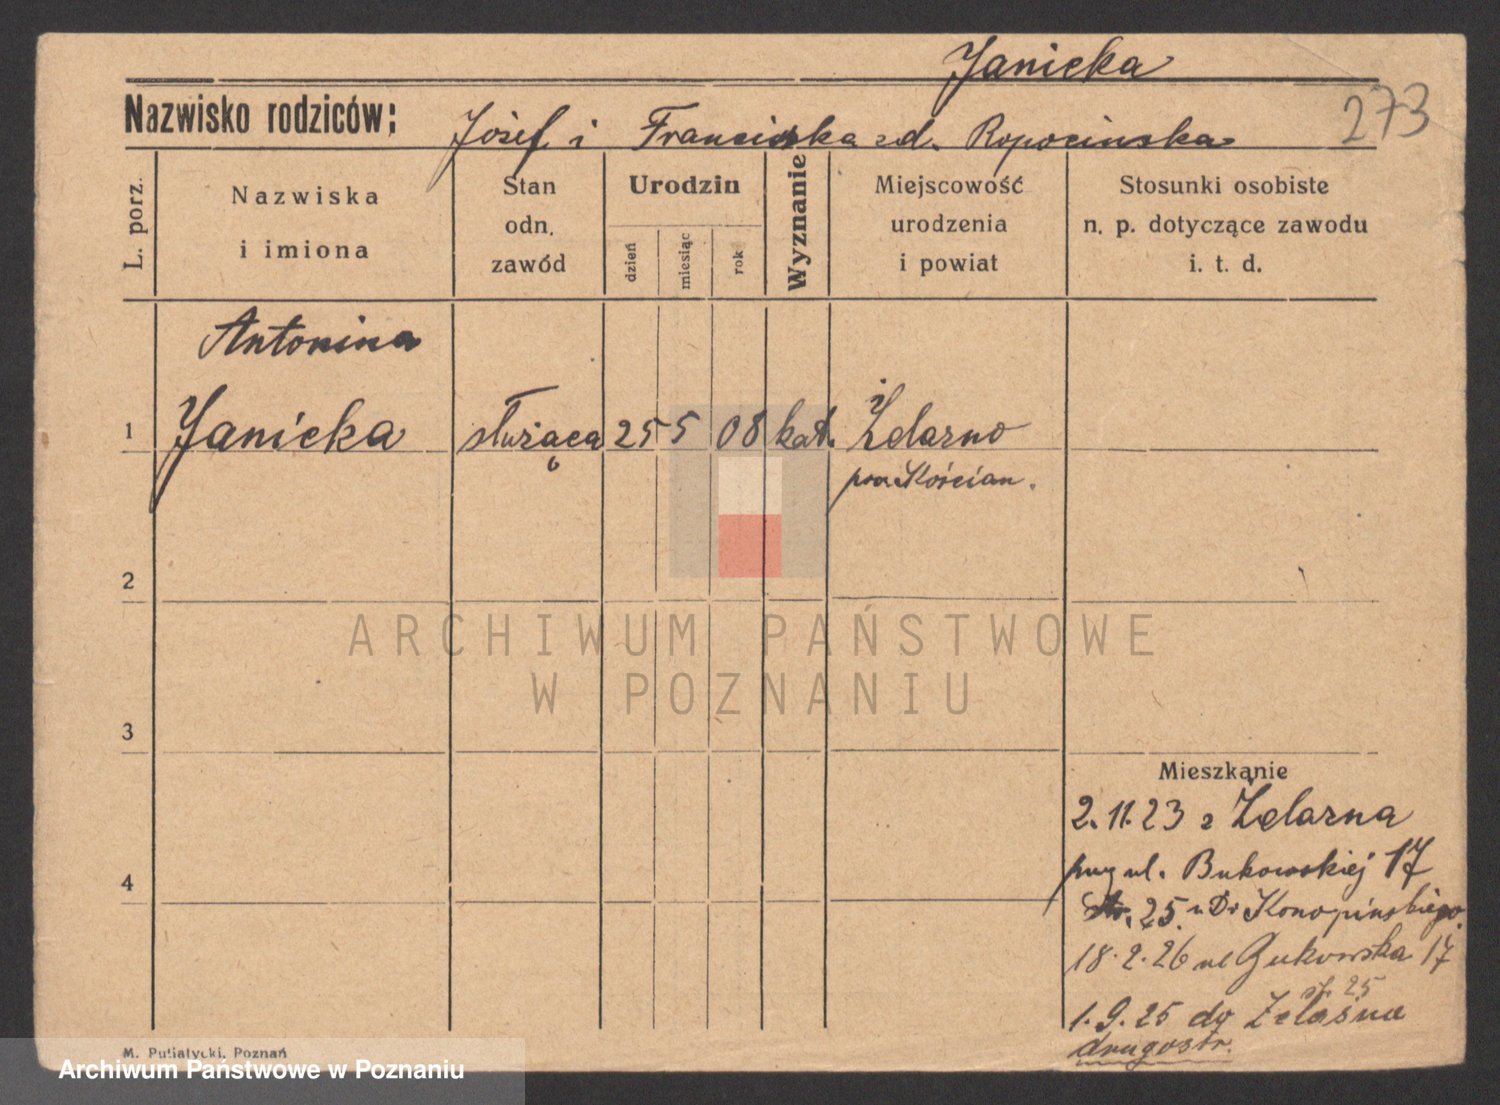 Janicka
Nazwisko rodziców; Józef i Franciszka zd. Ropocinska
273
L. porz.
Nazwiska
i imiona
Stan
odn.
zawód
Urodzin
dzień
miesiąc
rok
Wyznanie
Miejscowość
urodzenia
i powiat
Stosunki osobiste
n. p. dotyczące zawodu
i. t. d.
Antonina
1 Janicka służąca 25 5 08 kat. Żelazno
pow. Kościan.
2
ARCHIWUM PAŃSTWOWE
W POZNANIU
3
Mieszkanie
2.11.23 z Żelazna
przy ul. Bukowskiej 17
25. u Dr Konopińskiego
4
18.2.26 ul Bukowska 17
25
1.9.25 do Żelasna
drugostr.
M. Putiatycki, Poznań
Archiwum Państwowe w Poznaniu